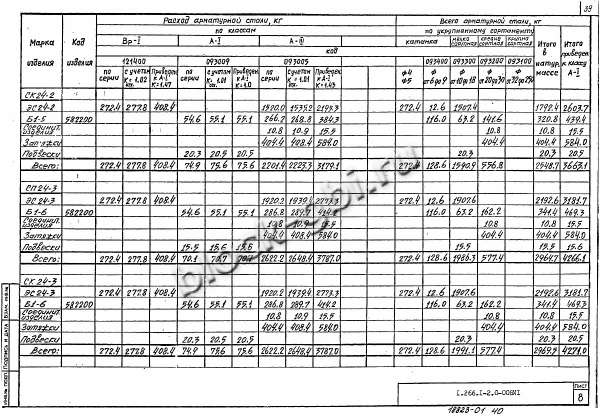 39
Расход арматурной стали, кг
Всего арматурной стали, кг
по классам
по укрупненному сортаменту
Марка изделия
Код изделия
Вр-I
А-I
А-III
катанка
мелко сортная
средне сортная
крупно сортная
Итого в натур. массе
Итого приведен. к классу А-I
код
121400
093009
093005
093400
093300
093200
093100
по серии
с учетом К = 1.02
Приведен. к А-I К = 1.47
по серии
с учетом К = 1.01
Приведен. к А-I К = 1.0
по серии
с учетом К = 1.01
Приведен. к А-I К = 1.43
Ф4 Ф5
Ф от 6 до 9
Ф 10 до 18
Ф 20 до 30
Ф 32 до 250
СК24-2
ЭС24-2 272.4 277.8 408.4 1520.0 1535.2 2195.3 272.4 12.6 1507.4 1792.4 2603.7
Б1-5 582200 54.6 55.1 55.1 266.2 268.8 384.3 116.0 63.2 141.6 320.8 439.4
Соединит. изделия 10.8 10.9 15.5 10.8 10.8 15.5
Затяжки 404.4 408.4 584.0 404.4 404.4 584.0
Подвески 20.3 20.5 20.5 20.3 20.3 20.5
Всего: 272.4 277.8 408.4 74.9 75.6 75.6 2201.4 2223.3 3179.1 272.4 128.6 1590.9 556.8 2548.7 3663.1
СП24-3
ЭС24-3 272.4 277.8 408.4 1920.2 1939.4 2773.3 272.4 12.6 1907.6 2192.6 3181.7
Б1-6 582200 54.6 55.1 55.1 286.8 289.7 414.2 116.0 63.2 162.2 341.4 469.3
Соединит. изделия 10.8 10.9 15.5 10.8 10.8 15.5
Затяжки 404.4 408.4 584.0 404.4 404.4 584.0
Подвески 15.5 15.6 15.6 15.5 15.5 15.6
Всего: 272.4 277.8 408.4 70.1 70.7 70.7 2622.2 2648.4 3787.0 272.4 128.6 1986.3 577.4 2964.7 4266.1
СК 24-3
ЭС24-3 272.4 277.8 408.4 1920.2 1939.4 2773.3 272.4 12.6 1907.6 2192.6 3181.7
Б1-6 582200 54.6 55.1 55.1 286.8 289.7 414.2 116.0 63.2 162.2 341.4 469.3
Соединит. изделия 10.8 10.9 15.5 10.8 10.8 15.5
Затяжки 404.4 408.4 584.0 404.4 404.4 584.0
Подвески 20.3 20.5 20.5 20.3 20.3 20.5
Всего: 272.4 277.8 408.4 74.9 75.6 75.6 2622.2 2648.4 3787.0 272.4 128.6 1991.1 577.4 2969.5 4271.0
block-gbi.ru
Подпись и дата
1.266.1-2.0-00ВМ1
Лист
8
18823-01 40